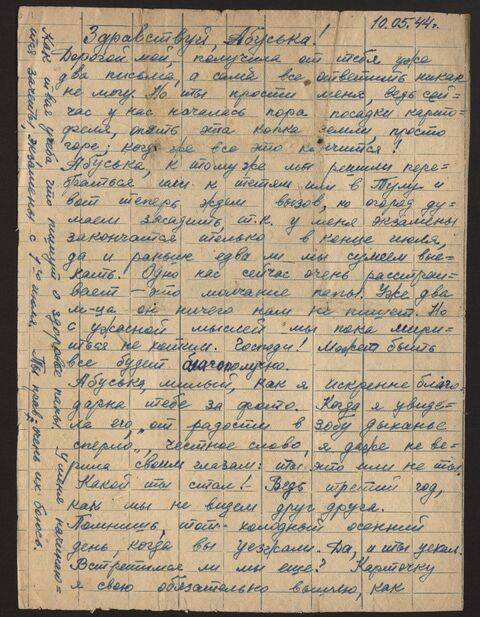 10.05.44г.
Здравствуй, Абуська!
Дорогой мой, получила от тебя уже
два письма, а сама все ответить никак
не могу. Но ты прости меня, ведь сей=
час у нас началась пора посадки карто=
феля, опять эта копка земли, просто
горе; когда же все это кончится!
Абуська, к тому же мы решили пере=
браться или к тетям или в Тулу и
вот теперь ждем вызов, но огород ду=
маем засадить, т.к. у меня экзамены
закончатся только в конце июня,
да и раньше едва ли мы сумеем вые=
хать. Одно нас сейчас очень расстраи=
вает – это молчание папы! Уже два
м-ца он ничего нам не пишет. Но
с ужасной мыслей мы пока мири=
ться не хотим. Господи! Может быть
все будет благополучно.
Абуська, милый, как я искренне благо=
дарна тебе за фото. Когда я увиде=
ла его, "от радости в зобу дыханье
сперло", честное слово, я даже не ве=
рила своим глазам: ты это или не ты.
Какой ты стал! Ведь третий год,
как мы не видем друг друга.
Помнишь, тот холодный осенний
день, когда вы уезжали. Да, и ты уехал.
Встретимся ли мы еще? Карточку
я свою обязательно вышлю, как
Как твоя учеба, что пишут о здоровье папы. У меня начинаю=
тся зачеты, экзамены с 1го июня. Ты прав: очень их боюсь.